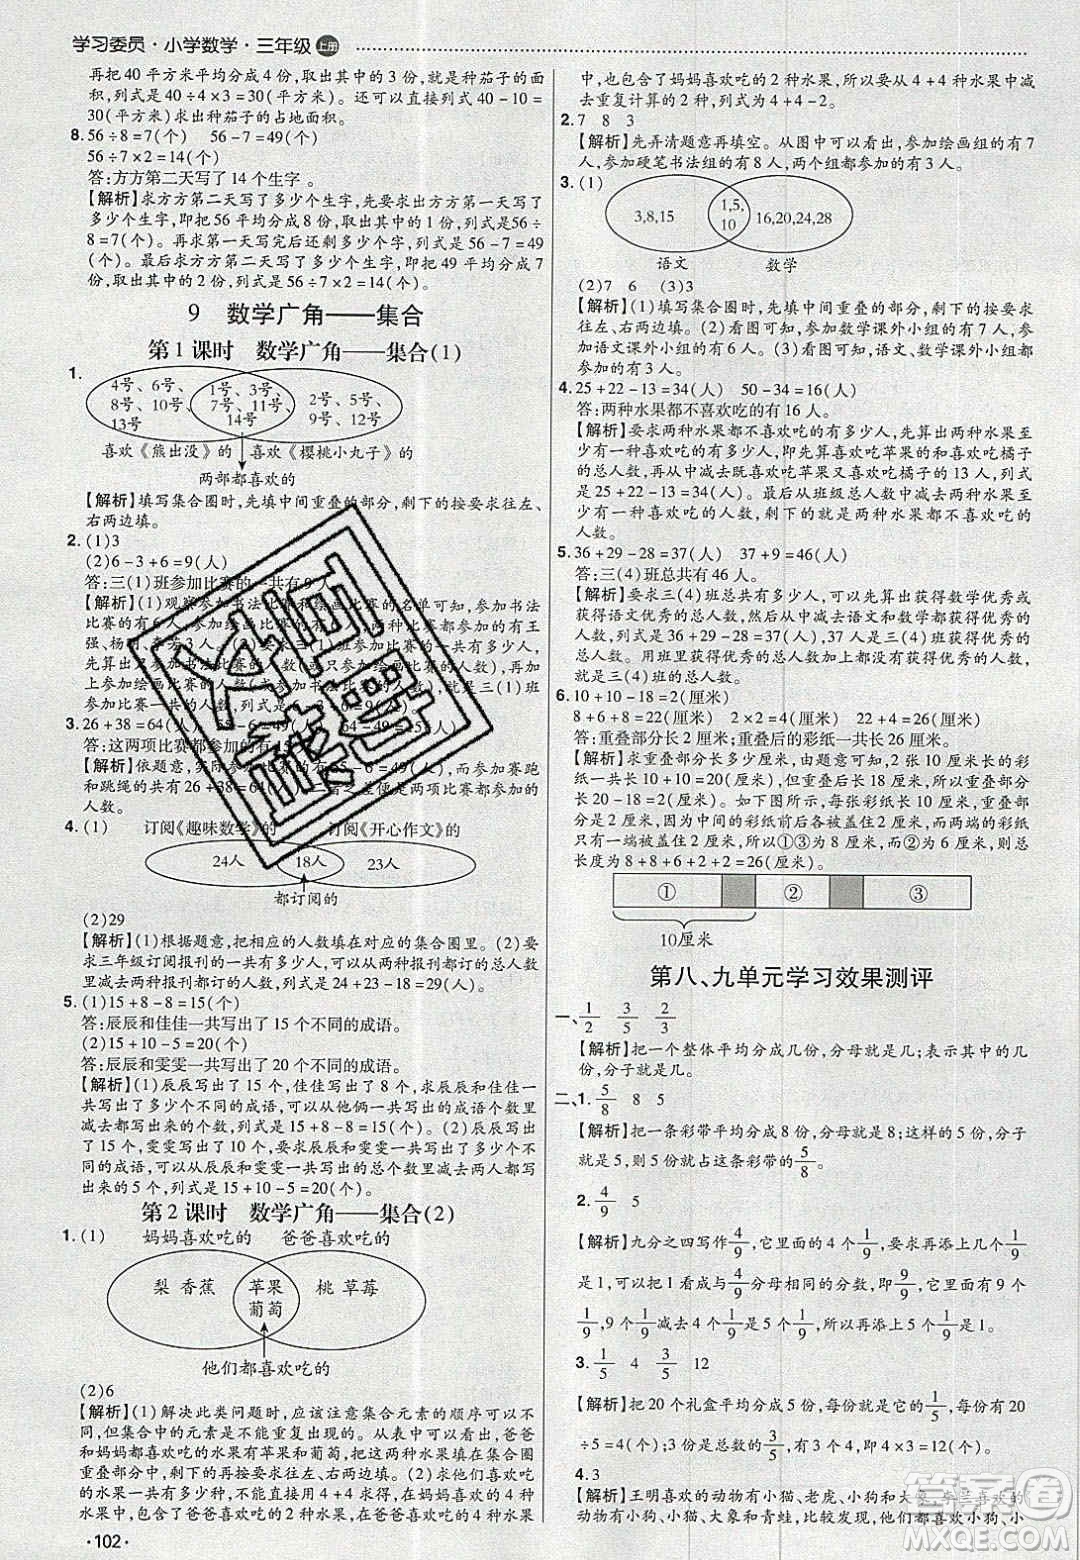 学习委员·小学数学·三年级 上册
再把 40 平方米平均分成 4 份,取出其中的 3 份,就是种茄子的面
积,列式是 40÷4×3=30(平方米)。还可以直接列式 40-10=
30(平方米)求出种茄子的占地面积。
8. 56÷8=7(个) 56-7=49(个)
56÷7×2=14(个)
答:方方第二天写了 14 个生字。
【解析】求方方第二天写了多少个生字,先要求出第一天写了
多少个生字,即把 56 平均分成 8 份,取出其中的 1 份,列式是 56÷
8=7(个)。再求第一天写完后还剩多少个字,列式是 56-7=49
(个)。最后求方方第二天写了多少个生字,就是把 49 平均分成 7
份,取出其中的 2 份,列式是 56÷7×2=14(个)。
9 数学广角——集合
第 1 课时 数学广角——集合(1)
1.
4号、6号、
8号、10号、
13号
1号、3号、
7号、11号、
14号
2号、5号、
9号、12号
喜欢《熊出没》的 喜欢《樱桃小丸子》的
两部都喜欢的
【解析】填写集合圈时,先填中间重叠的部分,剩下的按要求往左、
右两边填。
2. (1)3
(2)6-3+6=9(人)
答:三(1)班参加比赛的一共有 9 人。
【解析】(1)观察参加书法比赛和绘画比赛的名单可知,参加书法
比赛的有 6 人,参加绘画比赛的有 6 人,两项比赛都参加的有王
强、杨 3 人。(2)求三(1)班参加比赛的一共有多少人,
先算出只参加书法比赛的人数(或只参加绘画比赛的人数),再加
上参加绘画比赛的人数(或参加书法比赛的人数),就是三(1)班
参加比赛的一共有多少人。
3. 26+38=64(人) 64-49=15(人)
答:这两项比赛都参加的有 15 人。
【解析】依题意,实际参加比赛的有 54-5=49(人),而参加赛跑
和跳绳的共有 26+38=64(人),二者之差便是两项比赛都参加的
人数。
4. (1) 订阅《趣味数学》的 订阅《开心作文》的
24人 18人 23人
都订阅的
(2)29
【解析】(1)根据题意,把相应的人数填在对应的集合圈里。(2)要
求三年级订阅报刊的一共有多少人,就是用只订阅一种报刊的人
数加上两种报刊都订阅的人数,列式是 24+23-18=29(人)。
5. (1)15+8-8=15(个)
答:辰辰和佳佳一共写出了 15 个不同的成语。
(2)15+10-5=20(个)
答:辰辰和雯雯一共写出了 20 个不同的成语。
【解析】(1)辰辰写出了 15 个,佳佳写出了 8 个,求辰辰和佳佳一
共写出了多少个不同的成语,可以用他们写出的成语个数减去都
写出来的个数,列式是 15+8-8=15(个)。(2)辰辰写出了 15
个,雯雯写出了 10 个,要求辰辰和雯雯一共写出了多少个不
同的成语,可以用辰辰和雯雯写出的总个数减去两人都写出
的成语个数,列式是 15+10-5=20(个)。
第 2 课时 数学广角——集合(2)
1. (1) 妈妈喜欢吃的 爸爸喜欢吃的
梨 香蕉
苹果
葡萄
桃 草莓
他们都喜欢吃的
(2)6
【解析】(1)解决此类问题时,应该注意集合元素的顺序可以
变化,但集合中的元素是不能重复出现的。根据题意,爸爸
和妈妈都喜欢吃的水果有苹果和葡萄,把这两种水果填在集合圈
重叠部分中,剩下的按要求往左、右两边填。(2)求他们喜欢吃
的水果一共有多少种,因为妈妈喜欢吃的有 4 种,爸爸喜欢吃的
有 4 种,在计算爸爸喜欢吃的水果
·102·
中,也包括了妈妈喜欢吃的 2 种水果,所以要从 4+4 种水果中减
去重复计算的 2 种,列式为 4+4-2。
2. 7 8 3
【解析】先弄清题意再填空。从图中可以看出,参加绘画组的有 7
人,参加硬笔书法组的有 8 人,两个组都参加的有 3 人。
3. (1)
3,8,15
1,5,
10
16,20,24,28
语文 数学
(2)7 6 (3)3
【解析】(1)填写集合圈时,先填中间重叠的部分,剩下的按要求
往左、右两边填。(2)看图可知,参加数学课外小组的有 7 人,
参加语文课外小组的有 6 人。(3)看图可知,语文、数学课外小组都
参加的有 3 人。
4. 25+22-13=34(人) 50-34=16(人)
答:两种水果都不喜欢吃的有 16 人。
【解析】要求两种水果都不喜欢吃的有多少人,先算出两种水果中
至少有一种喜欢吃的有多少人,先要算出喜欢吃苹果和喜欢吃橘子
的总人数,再从中减去既喜欢吃苹果又喜欢吃橘子的 13 人,列式
是 25+22-13=34(人)。最后从班级总人数中减去两种水果中至
少有一种喜欢吃的人数,剩下的就是两种水果都不喜欢吃的
人数。
5. 36+30-29=37(人) 37+9=46(人)
答:三(4)班总共有 46 人。
【解析】要求三(4)班总共有多少人,先要求出获得数学优秀或
获得语文优秀的总人数,然后从中减去语文和数学都优秀的人
数,列式是 36+30-29=37(人),37 人是这个班获得优秀的
总人数。用班里获得优秀的总人数加上都没有获得优秀的人数,
就是三(4)班的总人数。
6. 10+10-18=2(厘米)
8+6+8=22(厘米) 2×2=4(厘米) 22+4=26(厘米)
答:重叠部分长 2 厘米;重叠后的彩纸一共长 26 厘米。
【解析】求重叠部分长多少厘米,由题意可知,2 张 10 厘米的彩
纸重叠后是 18 厘米,总长度减去重叠后的长度,就是重叠部分
的长度。3 张彩纸重叠后如下图所示,每张彩纸长 10 厘米,重叠
后①和③的一端被盖住 2 厘米,②的两端各被盖住 2 厘米,即共被
盖住 4 厘米,所以①③没有被盖住的是 8 厘米,而②是 6 厘米,则总
长度为 8+6+8+2+2=26(厘米)。
① ② ③
10厘米
第八、九单元学习效果测评
一、1/2 3/5 2/3
【解析】把一个整体平均分成几份,分母就是几;表示其中的几
份,分子就是几。
二、1. 5/8 8 5
【解析】把一条彩带平均分成 8 份,分母就是 8;这样的 5 份,分子
就是 5,所以占这条彩带的 5/8。
2. 4/9 5
【解析】九分之四写作 4/9,要使 4/9 变成 1,先看 4/9 里有几个 1/9,再
是 1,可以把 1 看成与 4/9 分母相同的分数,即 9/9,它里面有 9 个
1/9,9 个 1/9 减去 4 个 1/9 就是 5 个 1/9,所以再添上 5 个 1/9 就是 1。
3. 1/5 4 3/5 12
【解析】把 20 个礼盒平均分成 5 份,每份占礼盒总数的 1/5,每份有
20÷5=4(个);3 份占总数的 3/5,共有 4×3=12(个)。
4. 3
【解析】王明喜欢的动物有小猫、老虎、小狗和大象,李兰喜欢的
动物有小狗、小猫、大象和青蛙,比较可知,他们都喜欢小狗、小